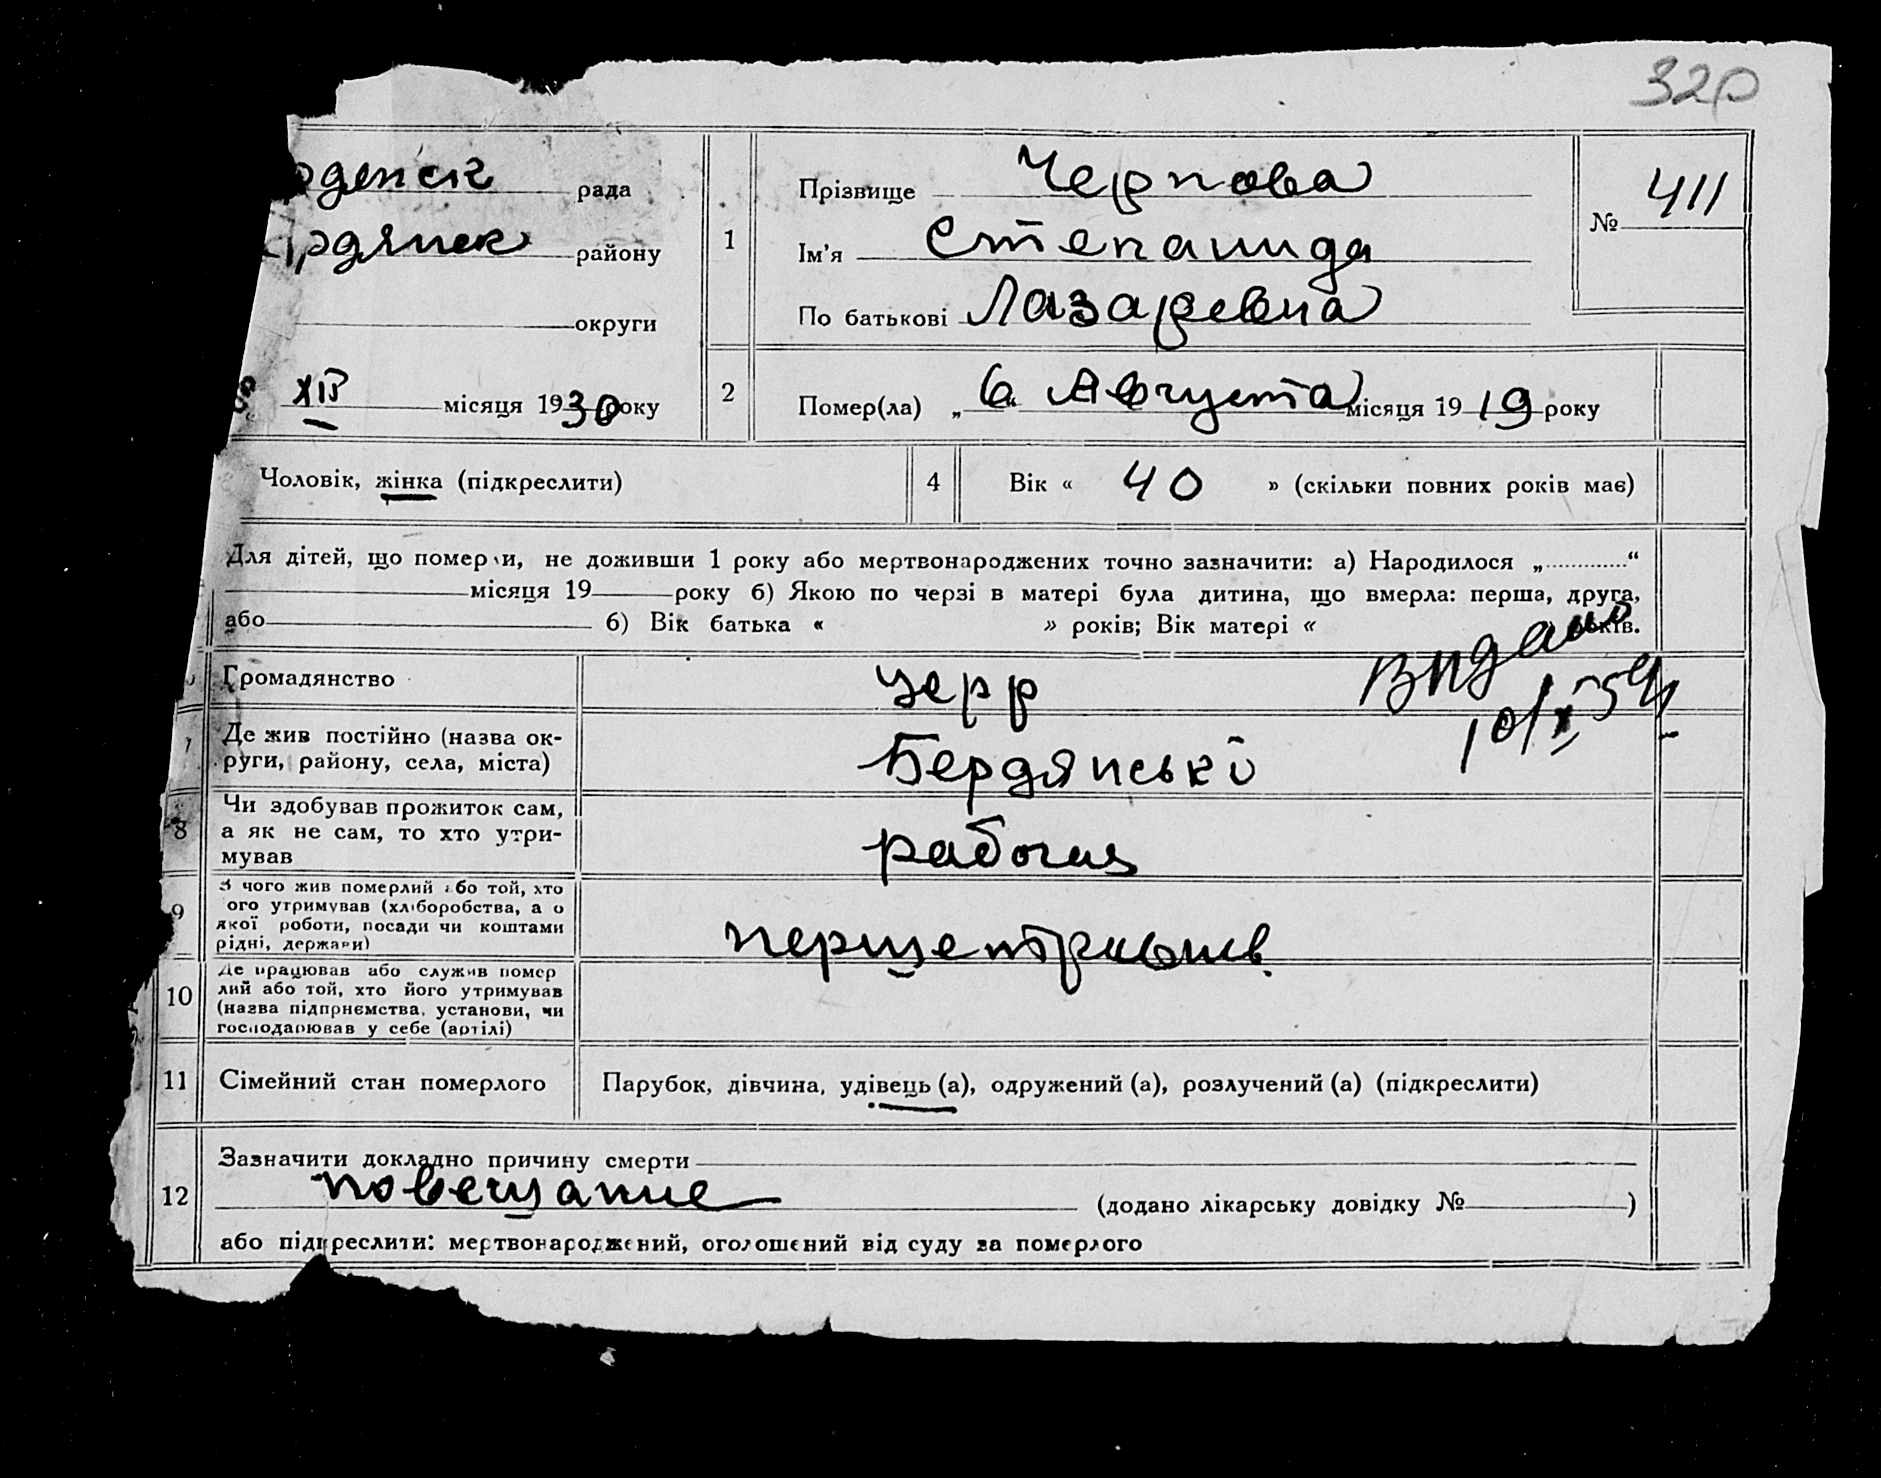 320
рденск рада
рдянск району
округи
XII місяця 1930 року
1
Прізвище Чернова
Ім’я Степанида
По батькові Лазаревна
№ 411
2 Помер(ла) „ 6 “ Августа місяця 1919 року
Чоловік, жінка (підкреслити)
4 Вік « 40 » (скільки повних років має)
Для дітей, що померли, не доживши 1 року або мертвонароджених точно зазначити: а) Народилося „ “
місяця 19 року б) Якою по черзі в матері була дитина, що вмерла: перша, друга,
або б) Вік батька « » років; Вік матері « » років.
Видано
10/X 54
Громадянство усрр
7 Де жив постійно (назва ок-
руги, району, села, міста) Бердянськ
8 Чи здобував прожиток сам,
а як не сам, то хто утри-
мував
рабочая
9 З чого жив померлий або той, хто
ого утримував (хліборобства, а о
якої роботи, посади чи коштами
рідні, держави)
10 Де працював або служив помер
лий або той, хто його утримував
(назва підприємства, установи, чи
господарював у себе (артілі)
11 Сімейний стан померлого Парубок, дівчина, удівець (а), одружений (а), розлучений (а) (підкреслити)
12 Зазначити докладно причину смерти
повещание (додано лікарську довідку № )
або підкреслити: мертвонароджений, оголошений від суду за померлого